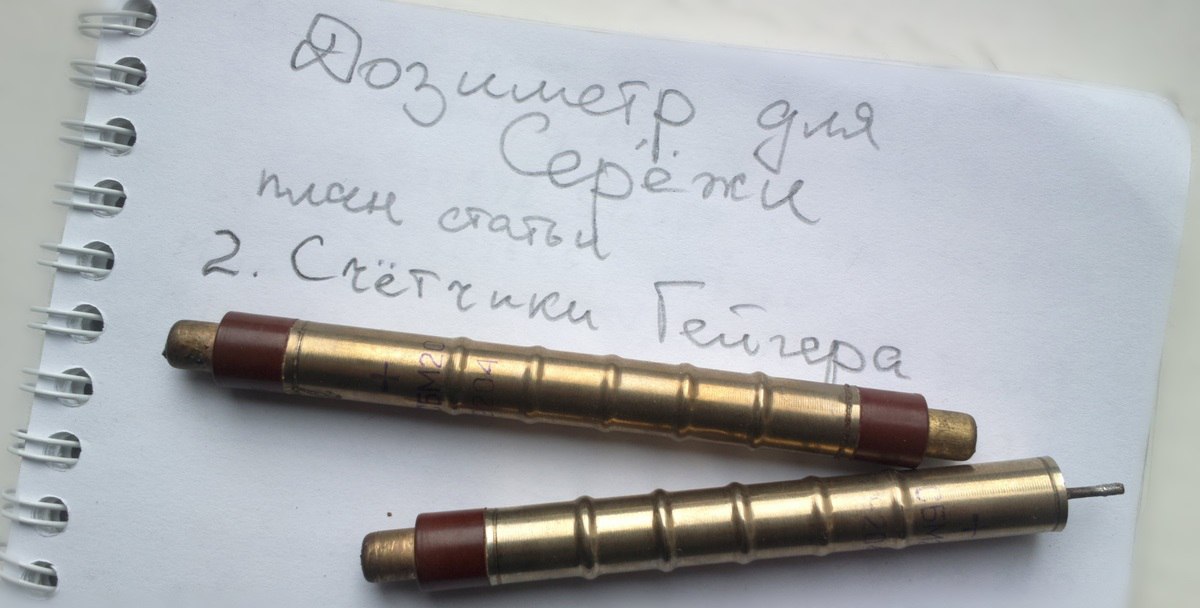 Дозиметр для
Серёжи
план статьи
2. Счётчики Гейгера
+
СБМ20